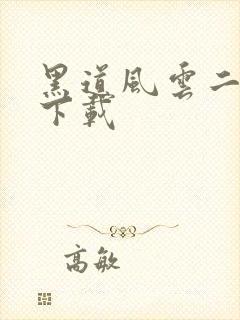 黑道風雲二
下載
高敏